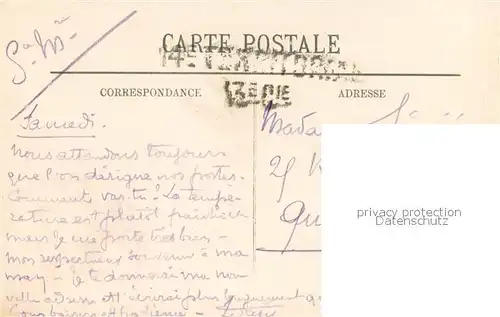 S. M.
CARTE POSTALE
14e TERRITORIAL
13e CIE
CORRESPONDANCE
ADRESSE
Samedi.
Nous attendons toujours
que l'on désigne nos postes.
Comment vas-tu? La tempé-
rature est plutôt
mais je me porte très bien -
mon respectueux souvenir à ma
- Je te donnerai ma nou
velle adresse et t'écrirai plus longuement
Madame
25
Qu
privacy protection
Datenschutz